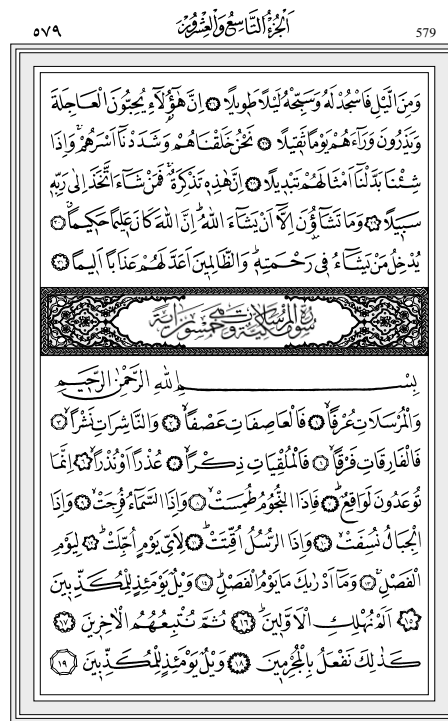 ٥٧٩ اَلْجُزْءُ التَّاسِعُ وَالْعِشْرُونَ 579
وَمِنَ الَّيْلِ فَاسْجُدْ لَهُ وَسَبِّحْهُ لَيْلًا طَوِيلًا ﴿٢٦﴾ اِنَّ هٰٓؤُلَٓاءِ يُحِبُّونَ الْعَاجِلَةَ
وَيَذَرُونَ وَرَٓاءَهُمْ يَوْمًا ثَقِيلًا ﴿٢٧﴾ نَحْنُ خَلَقْنَاهُمْ وَشَدَدْنَٓا اَسْرَهُمْۚ وَاِذَا
شِئْنَا بَدَّلْنَٓا اَمْثَالَهُمْ تَبْدِيلًا ﴿٢٨﴾ اِنَّ هٰذِهِ تَذْكِرَةٌۚ فَمَنْ شَٓاءَ اتَّخَذَ اِلٰى رَبِّهِ
سَبِيلًا ﴿٢٩﴾ وَمَا تَشَٓاؤُ۫نَ اِلَّٓا اَنْ يَشَٓاءَ اللّٰهُۜ اِنَّ اللّٰهَ كَانَ عَلِيمًا حَكِيمًاۗ ﴿٣٠﴾
يُدْخِلُ مَنْ يَشَٓاءُ فِي رَحْمَتِهِۜ وَالظَّالِمِينَ اَعَدَّ لَهُمْ عَذَابًا اَلِيمًا ﴿٣١﴾
سُورَةُ الْمُرْسَلَاتِ مَكِّيَّةٌ وَهِيَ خَمْسُونَ اٰيَةً
بِسْمِ اللّٰهِ الرَّحْمٰنِ الرَّحِيمِ
وَالْمُرْسَلَاتِ عُرْفًاۙ ﴿١﴾ فَالْعَاصِفَاتِ عَصْفًاۙ ﴿٢﴾ وَالنَّاشِرَاتِ نَشْرًاۙ ﴿٣﴾
فَالْفَارِقَاتِ فَرْقًاۙ ﴿٤﴾ فَالْمُلْقِيَاتِ ذِكْرًاۙ ﴿٥﴾ عُذْرًا اَوْ نُذْرًاۙ ﴿٦﴾ اِنَّمَا
تُوعَدُونَ لَوَاقِعٌۜ ﴿٧﴾ فَاِذَا النُّجُومُ طُمِسَتْۙ ﴿٨﴾ وَاِذَا السَّمَٓاءُ فُرِجَتْۙ ﴿٩﴾ وَاِذَا
الْجِبَالُ نُسِفَتْۙ ﴿١٠﴾ وَاِذَا الرُّسُلُ اُقِّتَتْۜ ﴿١١﴾ لِاَيِّ يَوْمٍ اُجِّلَتْۜ ﴿١٢﴾ لِيَوْمِ
الْفَصْلِۚ ﴿١٣﴾ وَمَٓا اَدْرٰيكَ مَا يَوْمُ الْفَصْلِۜ ﴿١٤﴾ وَيْلٌ يَوْمَئِذٍ لِلْمُكَذِّبِينَ
﴿١٥﴾ اَلَمْ نُهْلِكِ الْاَوَّلِينَۜ ﴿١٦﴾ ثُمَّ نُتْبِعُهُمُ الْاٰخِرِينَ ﴿١٧﴾
كَذٰلِكَ نَفْعَلُ بِالْمُجْرِمِينَ ﴿١٨﴾ وَيْلٌ يَوْمَئِذٍ لِلْمُكَذِّبِينَ ﴿١٩﴾